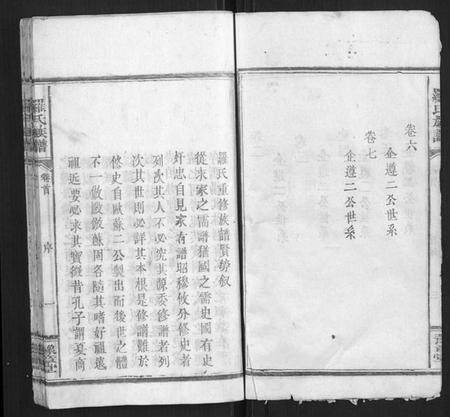 羅氏族譜
卷六
企遵二公世系
卷七
企遵二公世系
羅氏族譜
卷首
序
一
羅氏重修族譜賢勞叙
從來家之需譜猶國之需史國有史
奸忠自見家有譜昭穆攸分修史者
列次其人不必究其源委修譜者列
次其世則必詳其本根是修譜難於
修史自歐蘇二公製出而後世之體
不一倣歐倣蘇固各隨其嗜好祖遠
祖近要必求其實徵昔孔子謂夏商